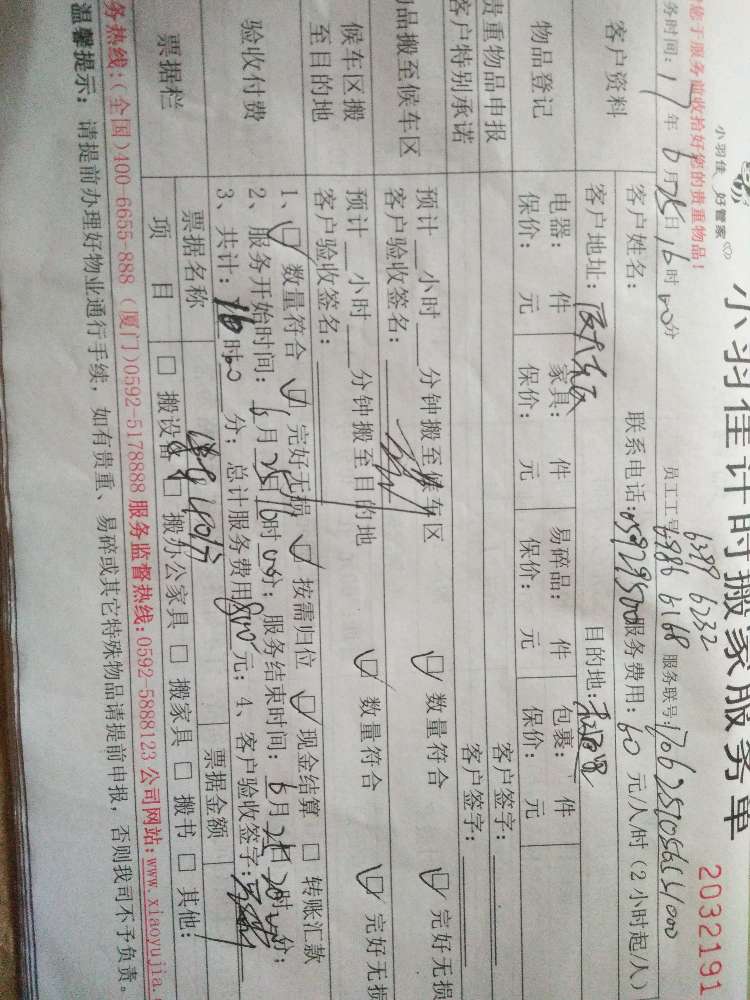 小羽佳 好管家
小羽佳计时搬家服务单
2032191
您于服务前收拾好您的贵重物品!
员工工号:
6399 6232
6986 6168
服务联号:
务时间:17年6月25日16时00分
客户资料
客户姓名:
联系电话:
服务费用:60元/人/时(2小时起/人)
客户地址:
目的地:
物品登记
电器: 件 家具: 件 易碎品: 件 包裹: 件
保价: 元 保价: 元 保价: 元 保价: 元
贵重物品申报
客户签字:
客户特别承诺
客户签字:
品搬至候车区
预计__小时__分钟搬至候车区 ☑ 数量符合 ☑ 完好无损
客户验收签名:
候车区搬至目的地
预计__小时__分钟搬至目的地 ☑ 数量符合 ☑ 完好无损
客户验收签名:
验收付费
1、☑ 数量符合 ☑ 完好无损 ☑ 按需归位 ☑ 现金结算 □ 转账汇款
2、服务开始时间:6月25日16时00分;服务结束时间:6月25日20时 分;
3、共计: 时 分;总计服务费用 元;4、客户验收签字:
票据栏
票据名称
票据金额
项 目
□ 搬设备 □ 搬办公家具 □ 搬家具 □ 搬书 □ 其他:
务热线:(全国)400-6655-888 (厦门)0592-5178888 服务监督热线:0592-5888123 公司网站:www.xiaoyujia.
温馨提示: 请提前办理好物业通行手续,如有贵重、易碎或其它特殊物品请提前申报,否则我司不予负责。